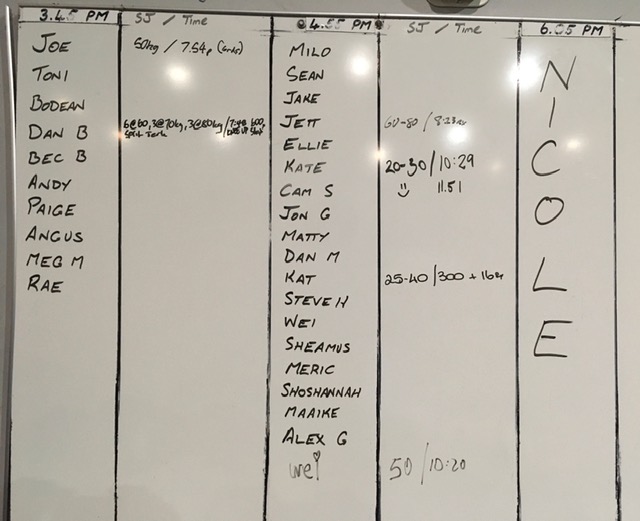 3.45 PM SJ / Time
JOE 50kg / 7.54
TONI
BODEAN
DAN B 6@60, 3@70kg, 3@80kg / 7:48
BEC B
ANDY
PAIGE
ANGUS
MEG M
RAE
4.55 PM SJ / Time
MILO
SEAN
JAKE
JETT 60-80 /
ELLIE
KATE 20-30 / 10:29
CAM S 11.51
JON G
MATTY
DAN M
KAT 25-40 / 300 + 16
STEVE H
WEI
SHEAMUS
MERIC
SHOSHANNAH
MAAIKE
ALEX G
wei 50 / 10:20
6.05 PM
NICOLE